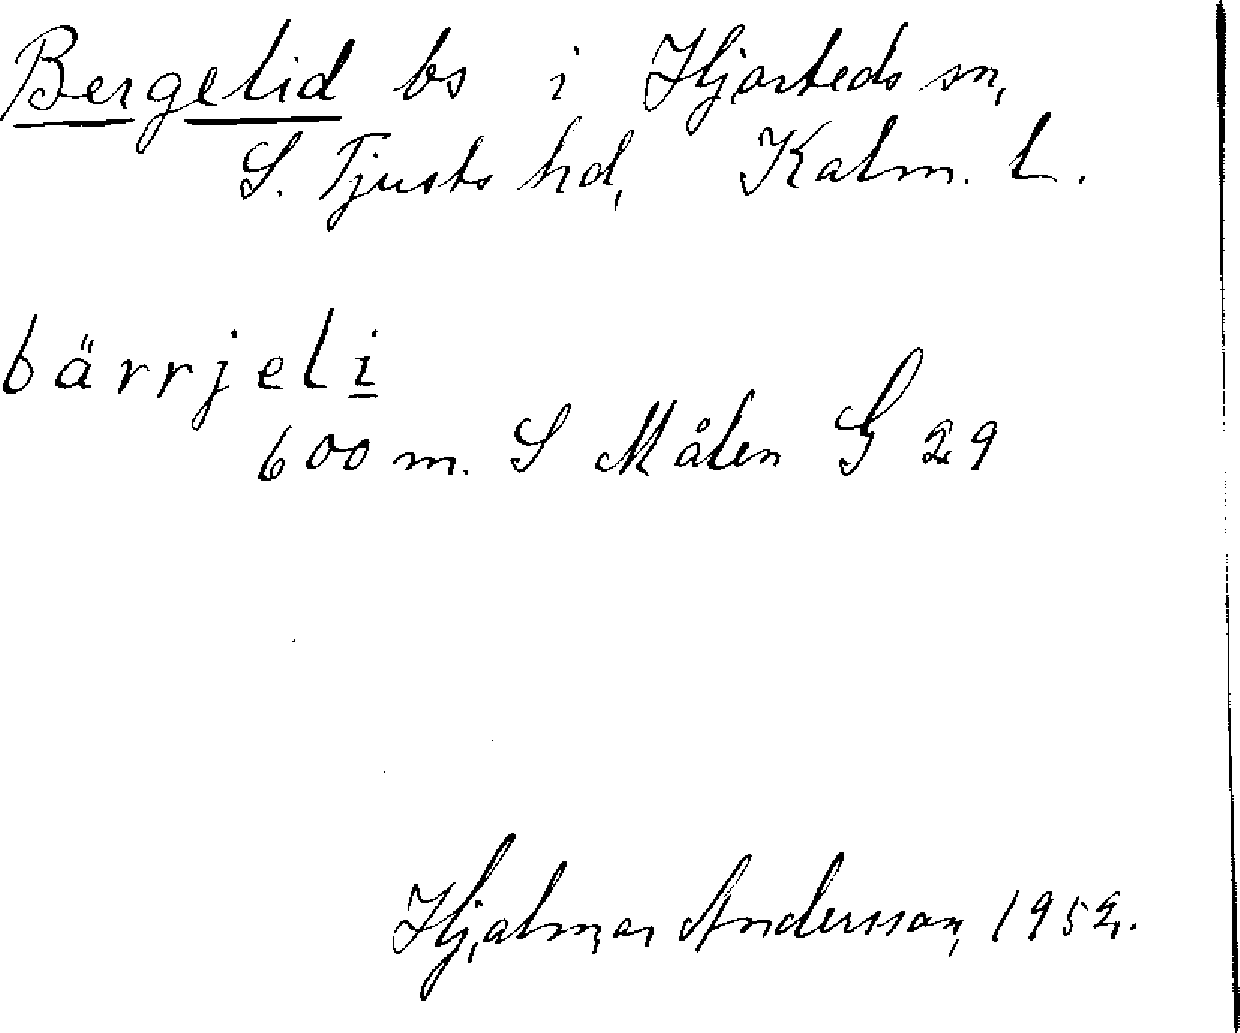 Bergelid bs i Hjorteds sn,
S. Tjusts hd, Kalm. L.
bärrjeli
600 m. S Målen G 29
Hjalmar Andersson, 1952.